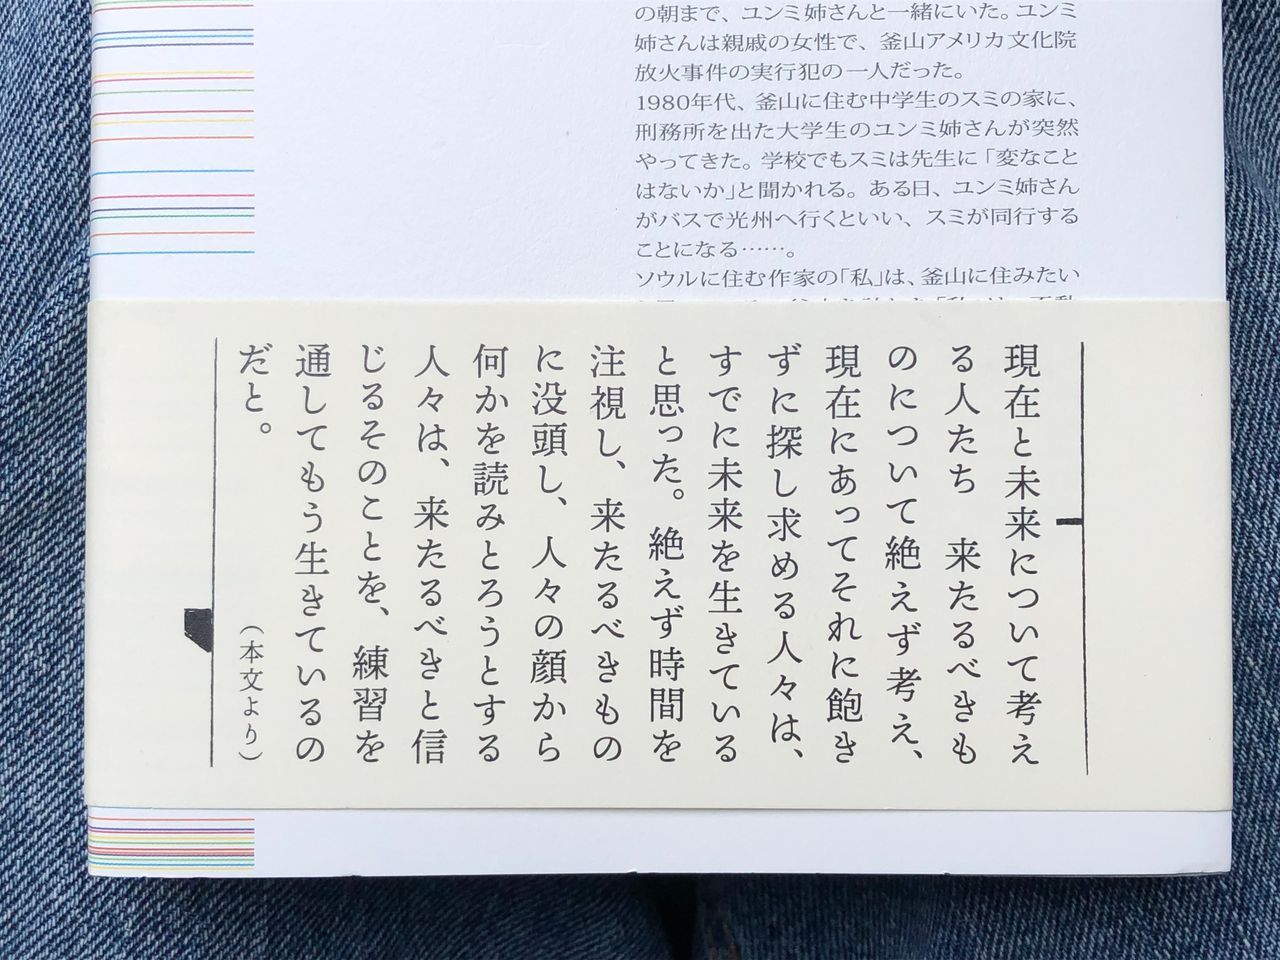 の朝まで、ユンミ姉さんと一緒にいた。ユンミ
姉さんは親戚の女性で、釜山アメリカ文化院
放火事件の実行犯の一人だった。
1980年代、釜山に住む中学生のスミの家に、
刑務所を出た大学生のユンミ姉さんが突然
やってきた。学校でもスミは先生に「変なこと
はないか」と聞かれる。ある日、ユンミ姉さん
がバスで光州へ行くといい、スミが同行する
ことになる……。
ソウルに住む作家の「私」は、釜山に住みたい
現在と未来について考え
る人たち　来たるべきも
のについて絶えず考え、
現在にあってそれに飽き
ずに探し求める人々は、
すでに未来を生きている
と思った。絶えず時間を
注視し、来たるべきもの
に没頭し、人々の顔から
何かを読みとろうとする
人々は、来たるべきと信
じるそのことを、練習を
通してもう生きているの
だと。
（本文より）